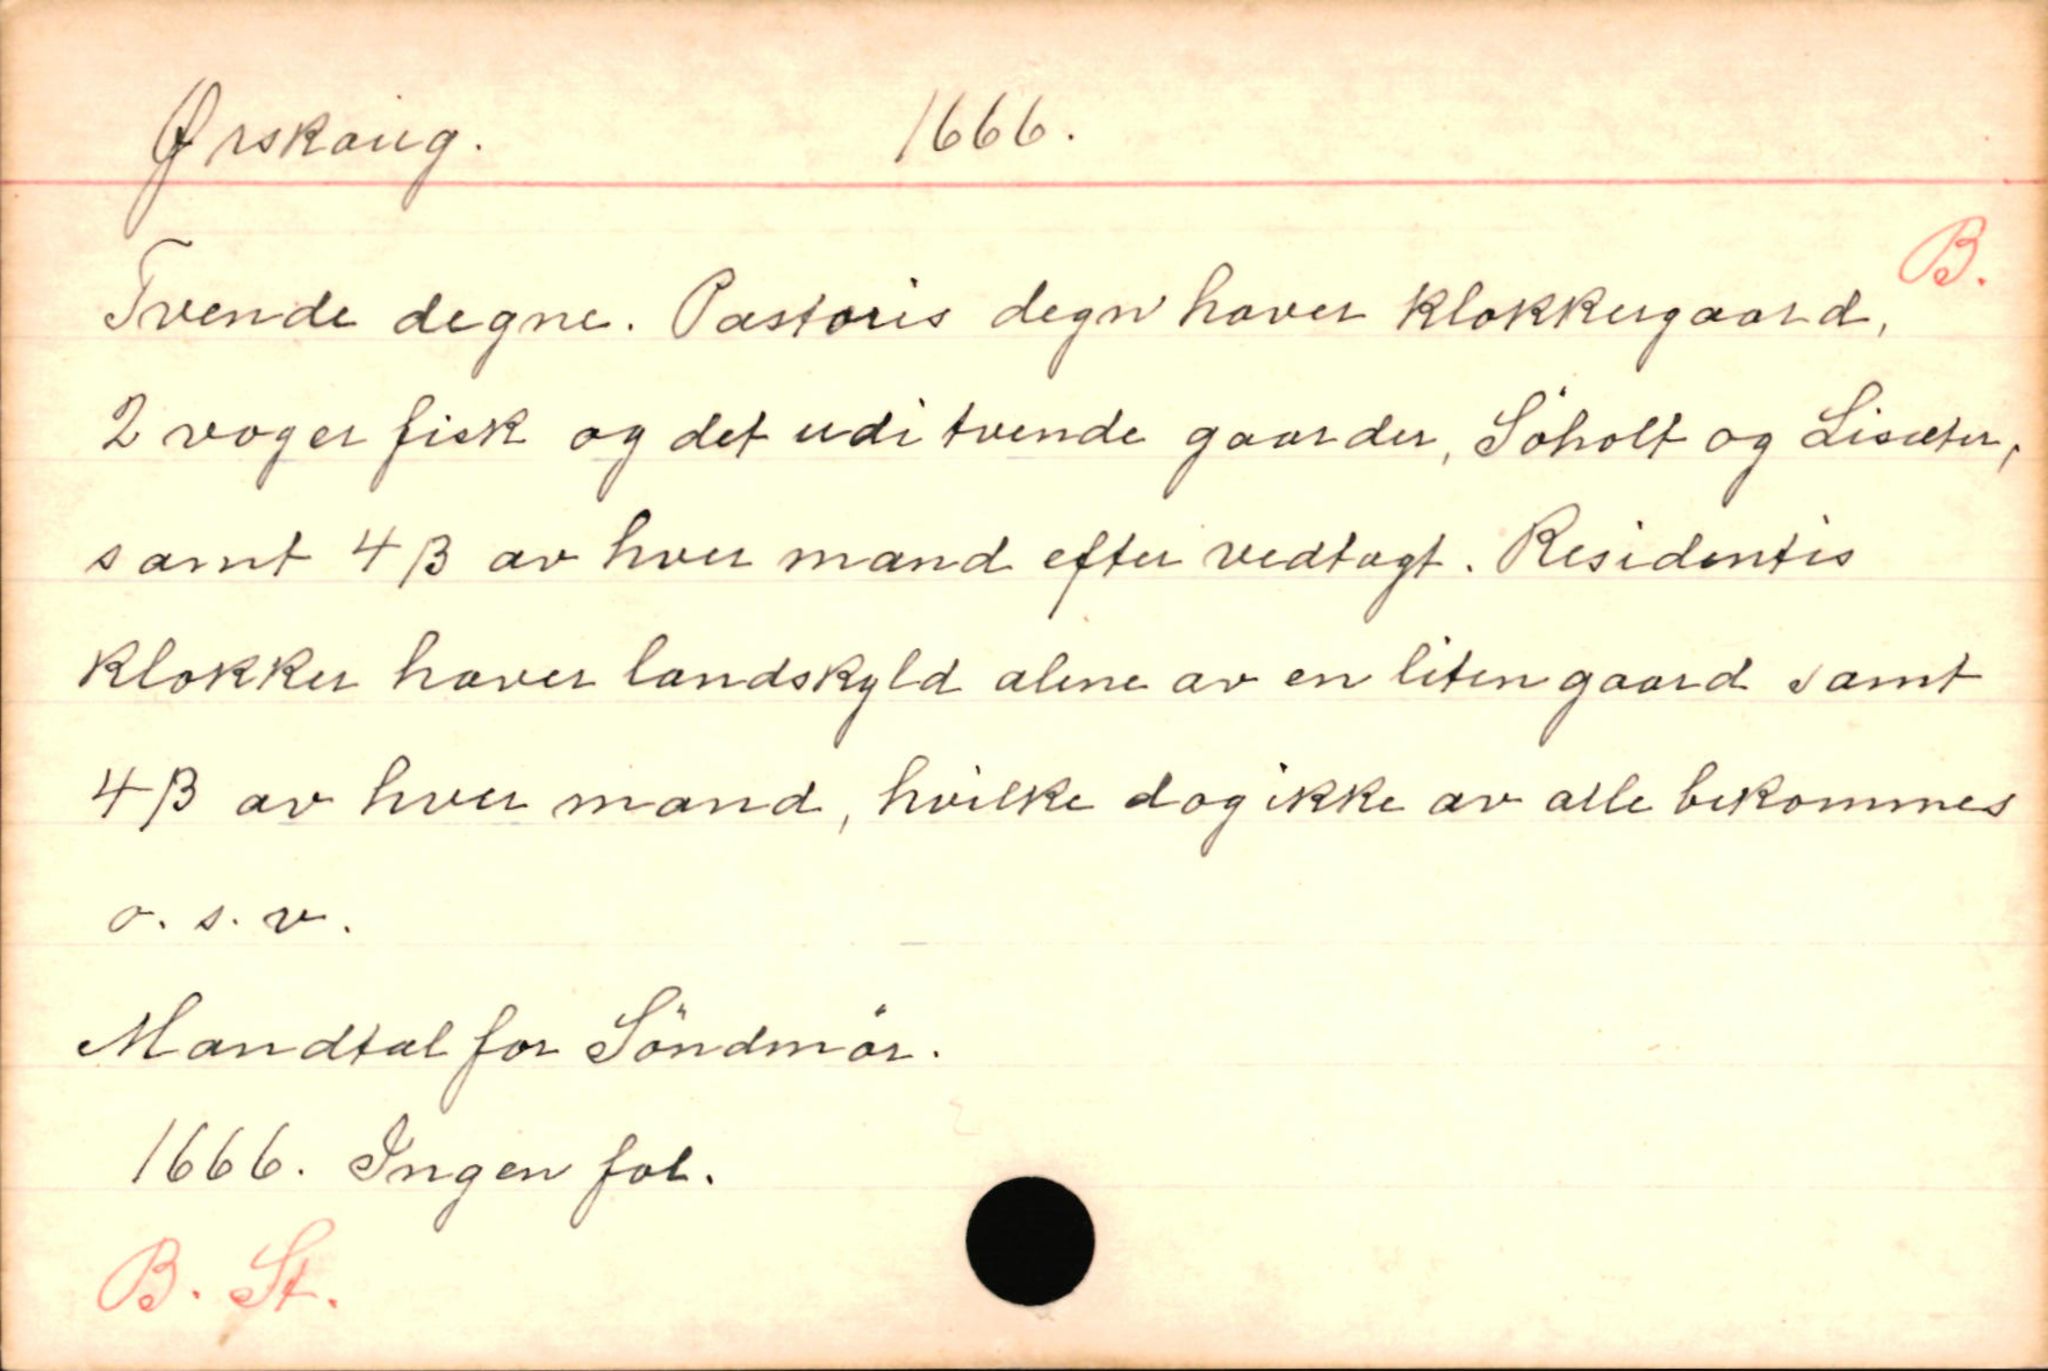 Ørskaug. 1666.
B.
Tvende degne. Pastoris degn haver klokkergaard,
2 voger fisk og det udi tvende gaarder, Söholt og Lisæter,
samt 4 β av hver mand efter vedtagt. Residentis
klokker haver landskyld alene av en liten gaard samt
4 β av hver mand, hvilke dog ikke av alle bekommes
o. s. v.
Mandtal for Söndmör.
1666. Ingen fol.
B. St.